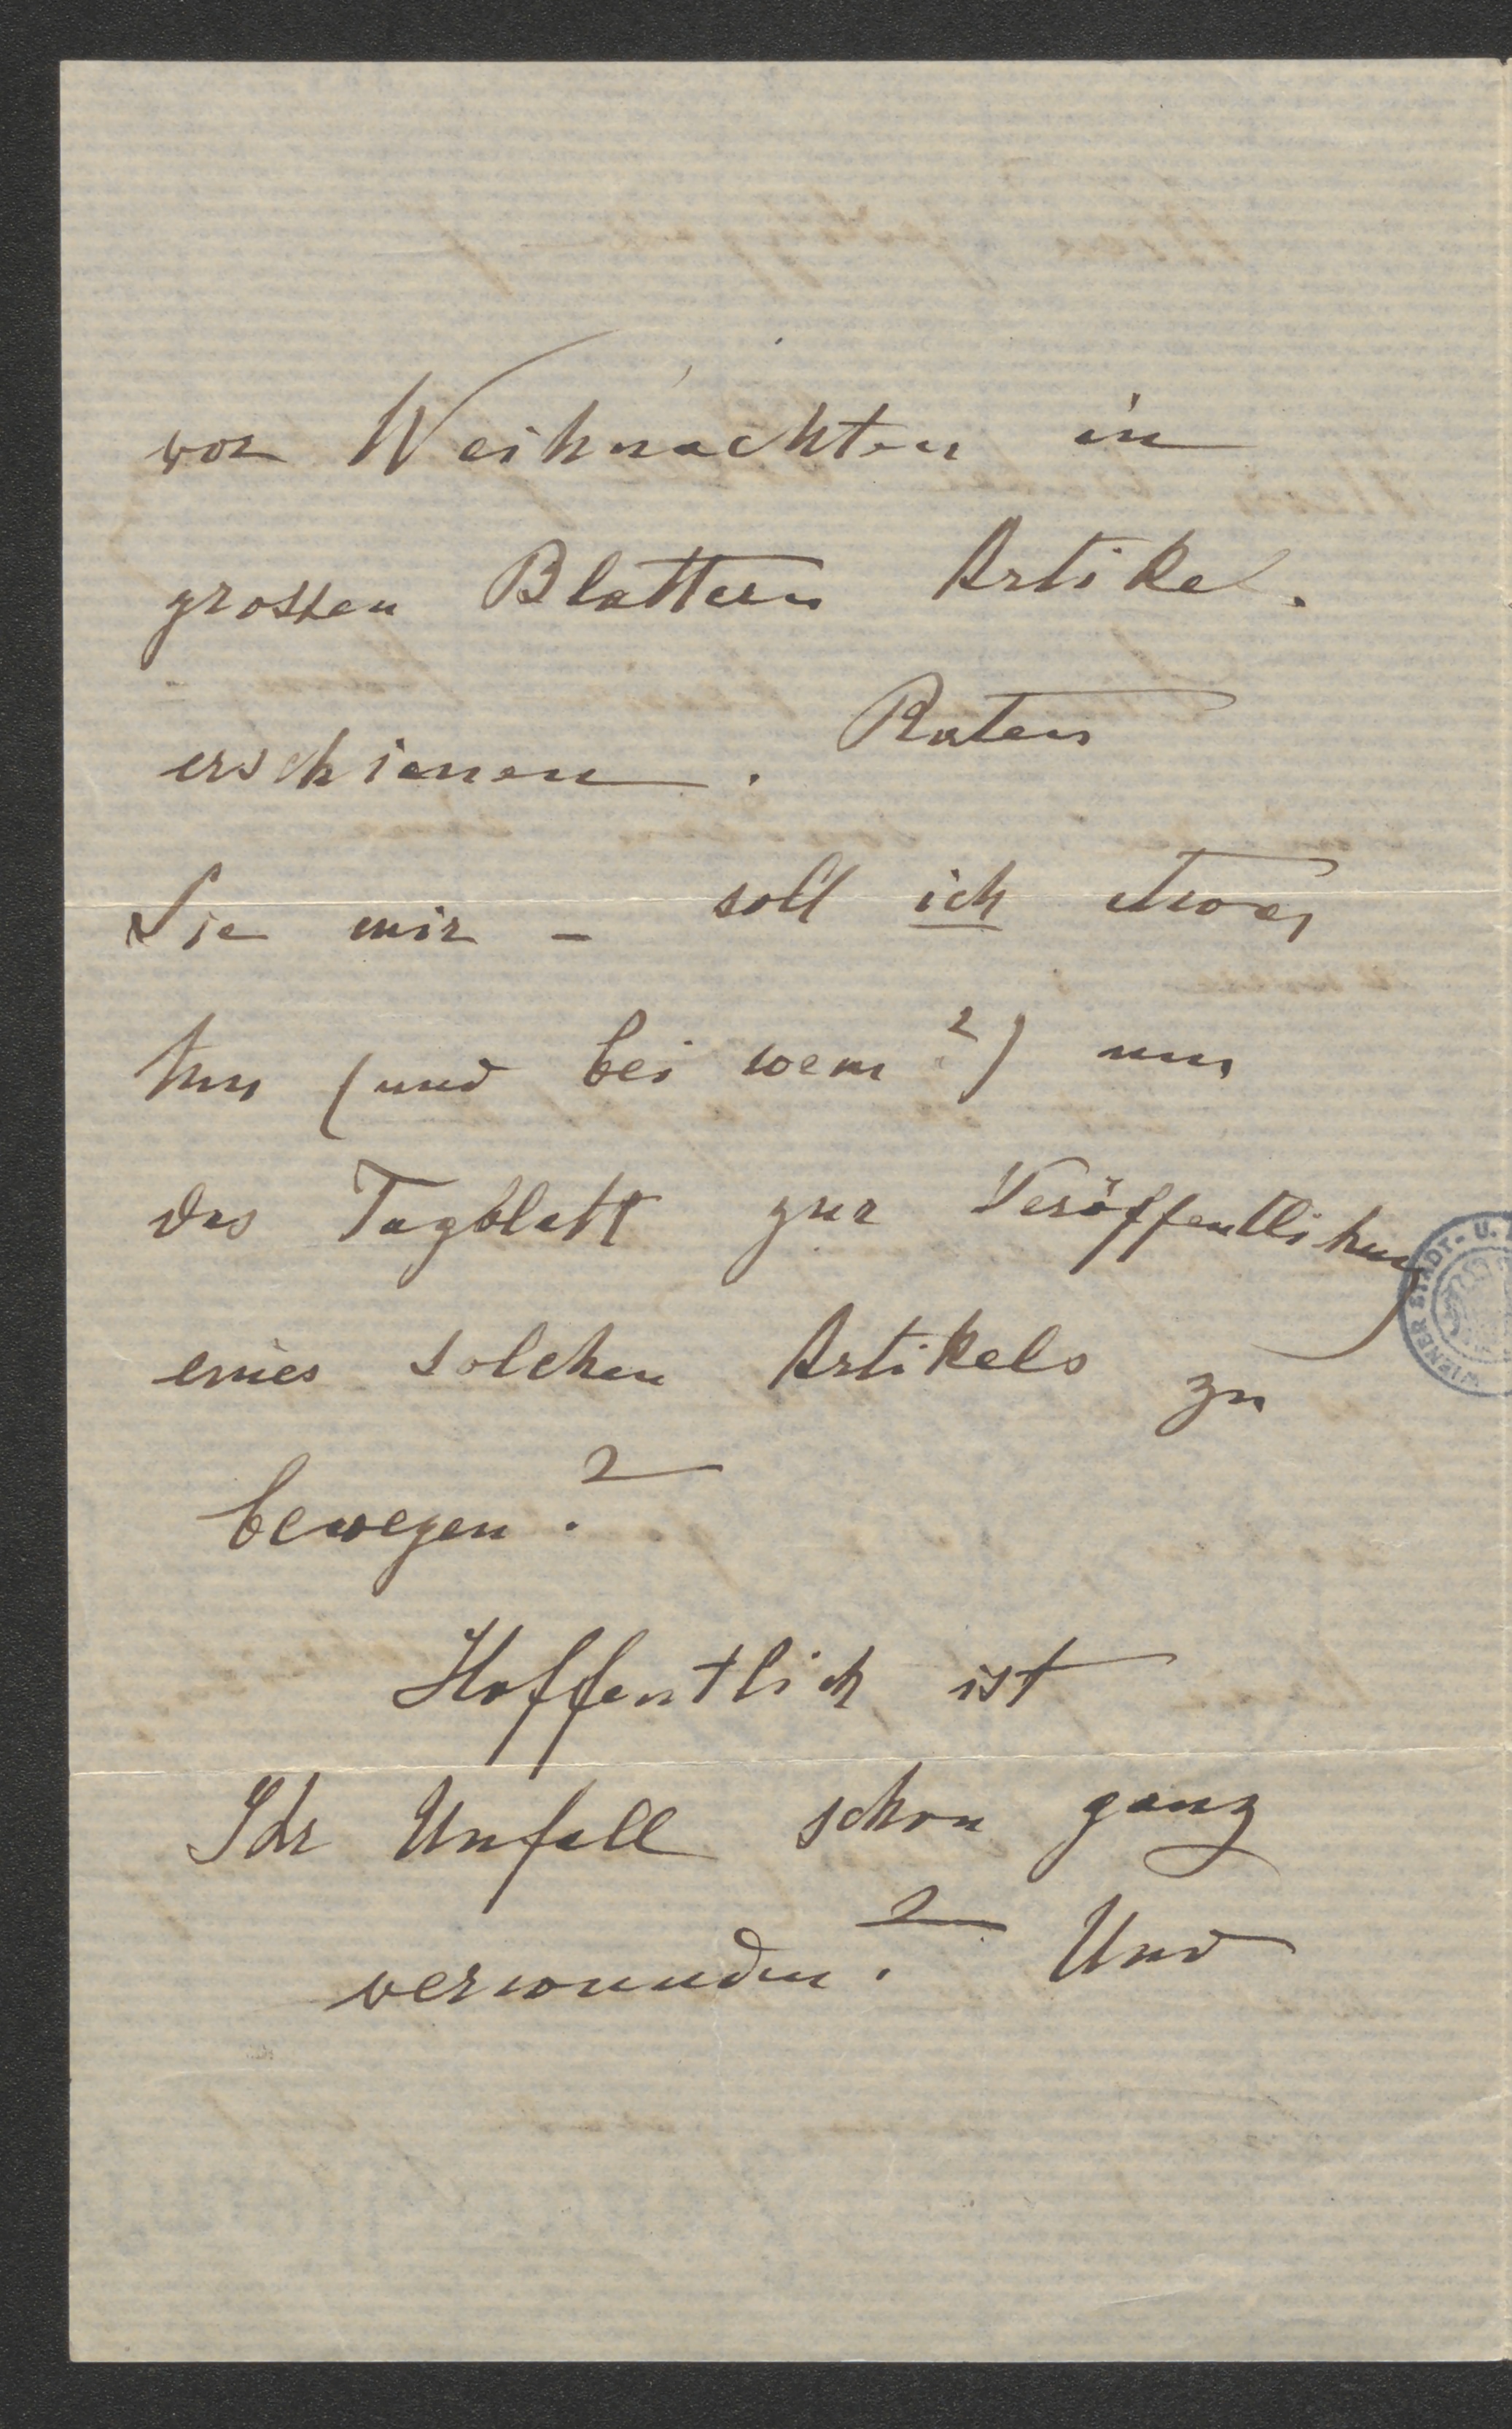 vor Weihnachten in
grossen Blattern Artikel.
erschienen. Raten
Sie mir - soll ich etwas
tun (und bei wem?) um
das Tagblatt zur Veröffentlichung
eines solchen Artikels zu
bewegen?
Hoffentlich ist
Ihr Unfall schon ganz
verwunden? Und
WIENER STADT- U.